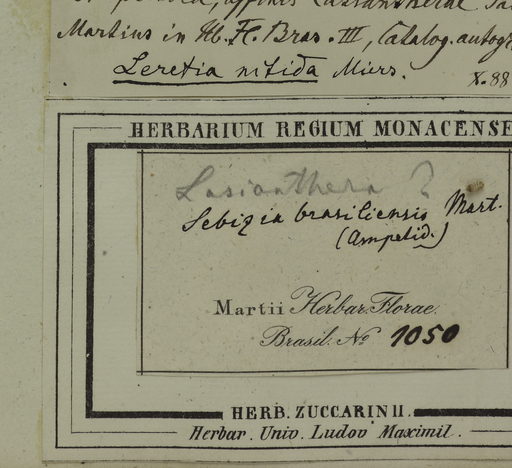 affinis Lasiantherae
Martius in Hb. Fl. Bras. III, Catalog. autogr
Leretia nitida Miers. X.88
HERBARIUM REGIUM MONACENSE
Lasianthera ?
Sebizia brasiliensis Mart.
(Ampelid.)
Martii Herbar. Florae
Brasil. No 1050
HERB. ZUCCARINII.
Herbar. Univ. Ludov Maximil.